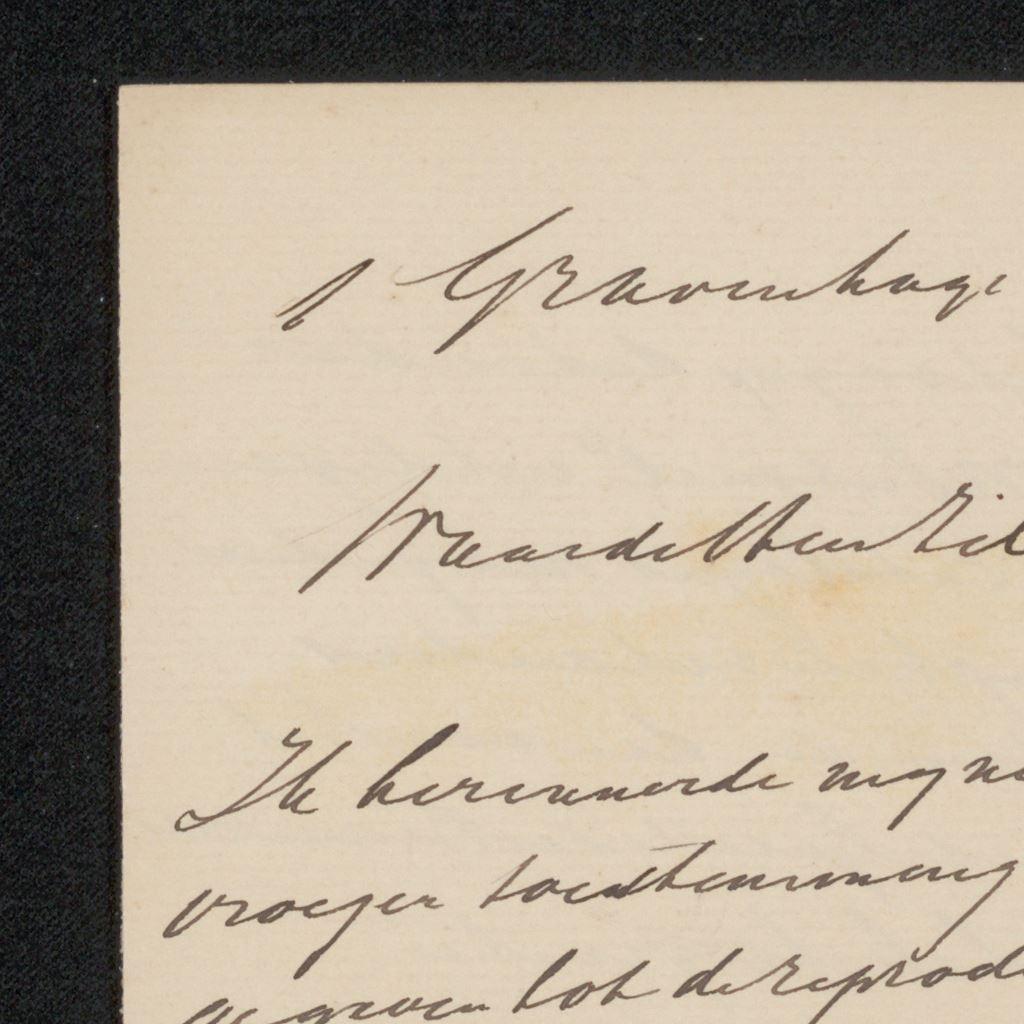 s Gravenhage
Waarde Heer Zil
Ik herinnerde mij ni
vroeger toestemming
gegeven tot de reprod